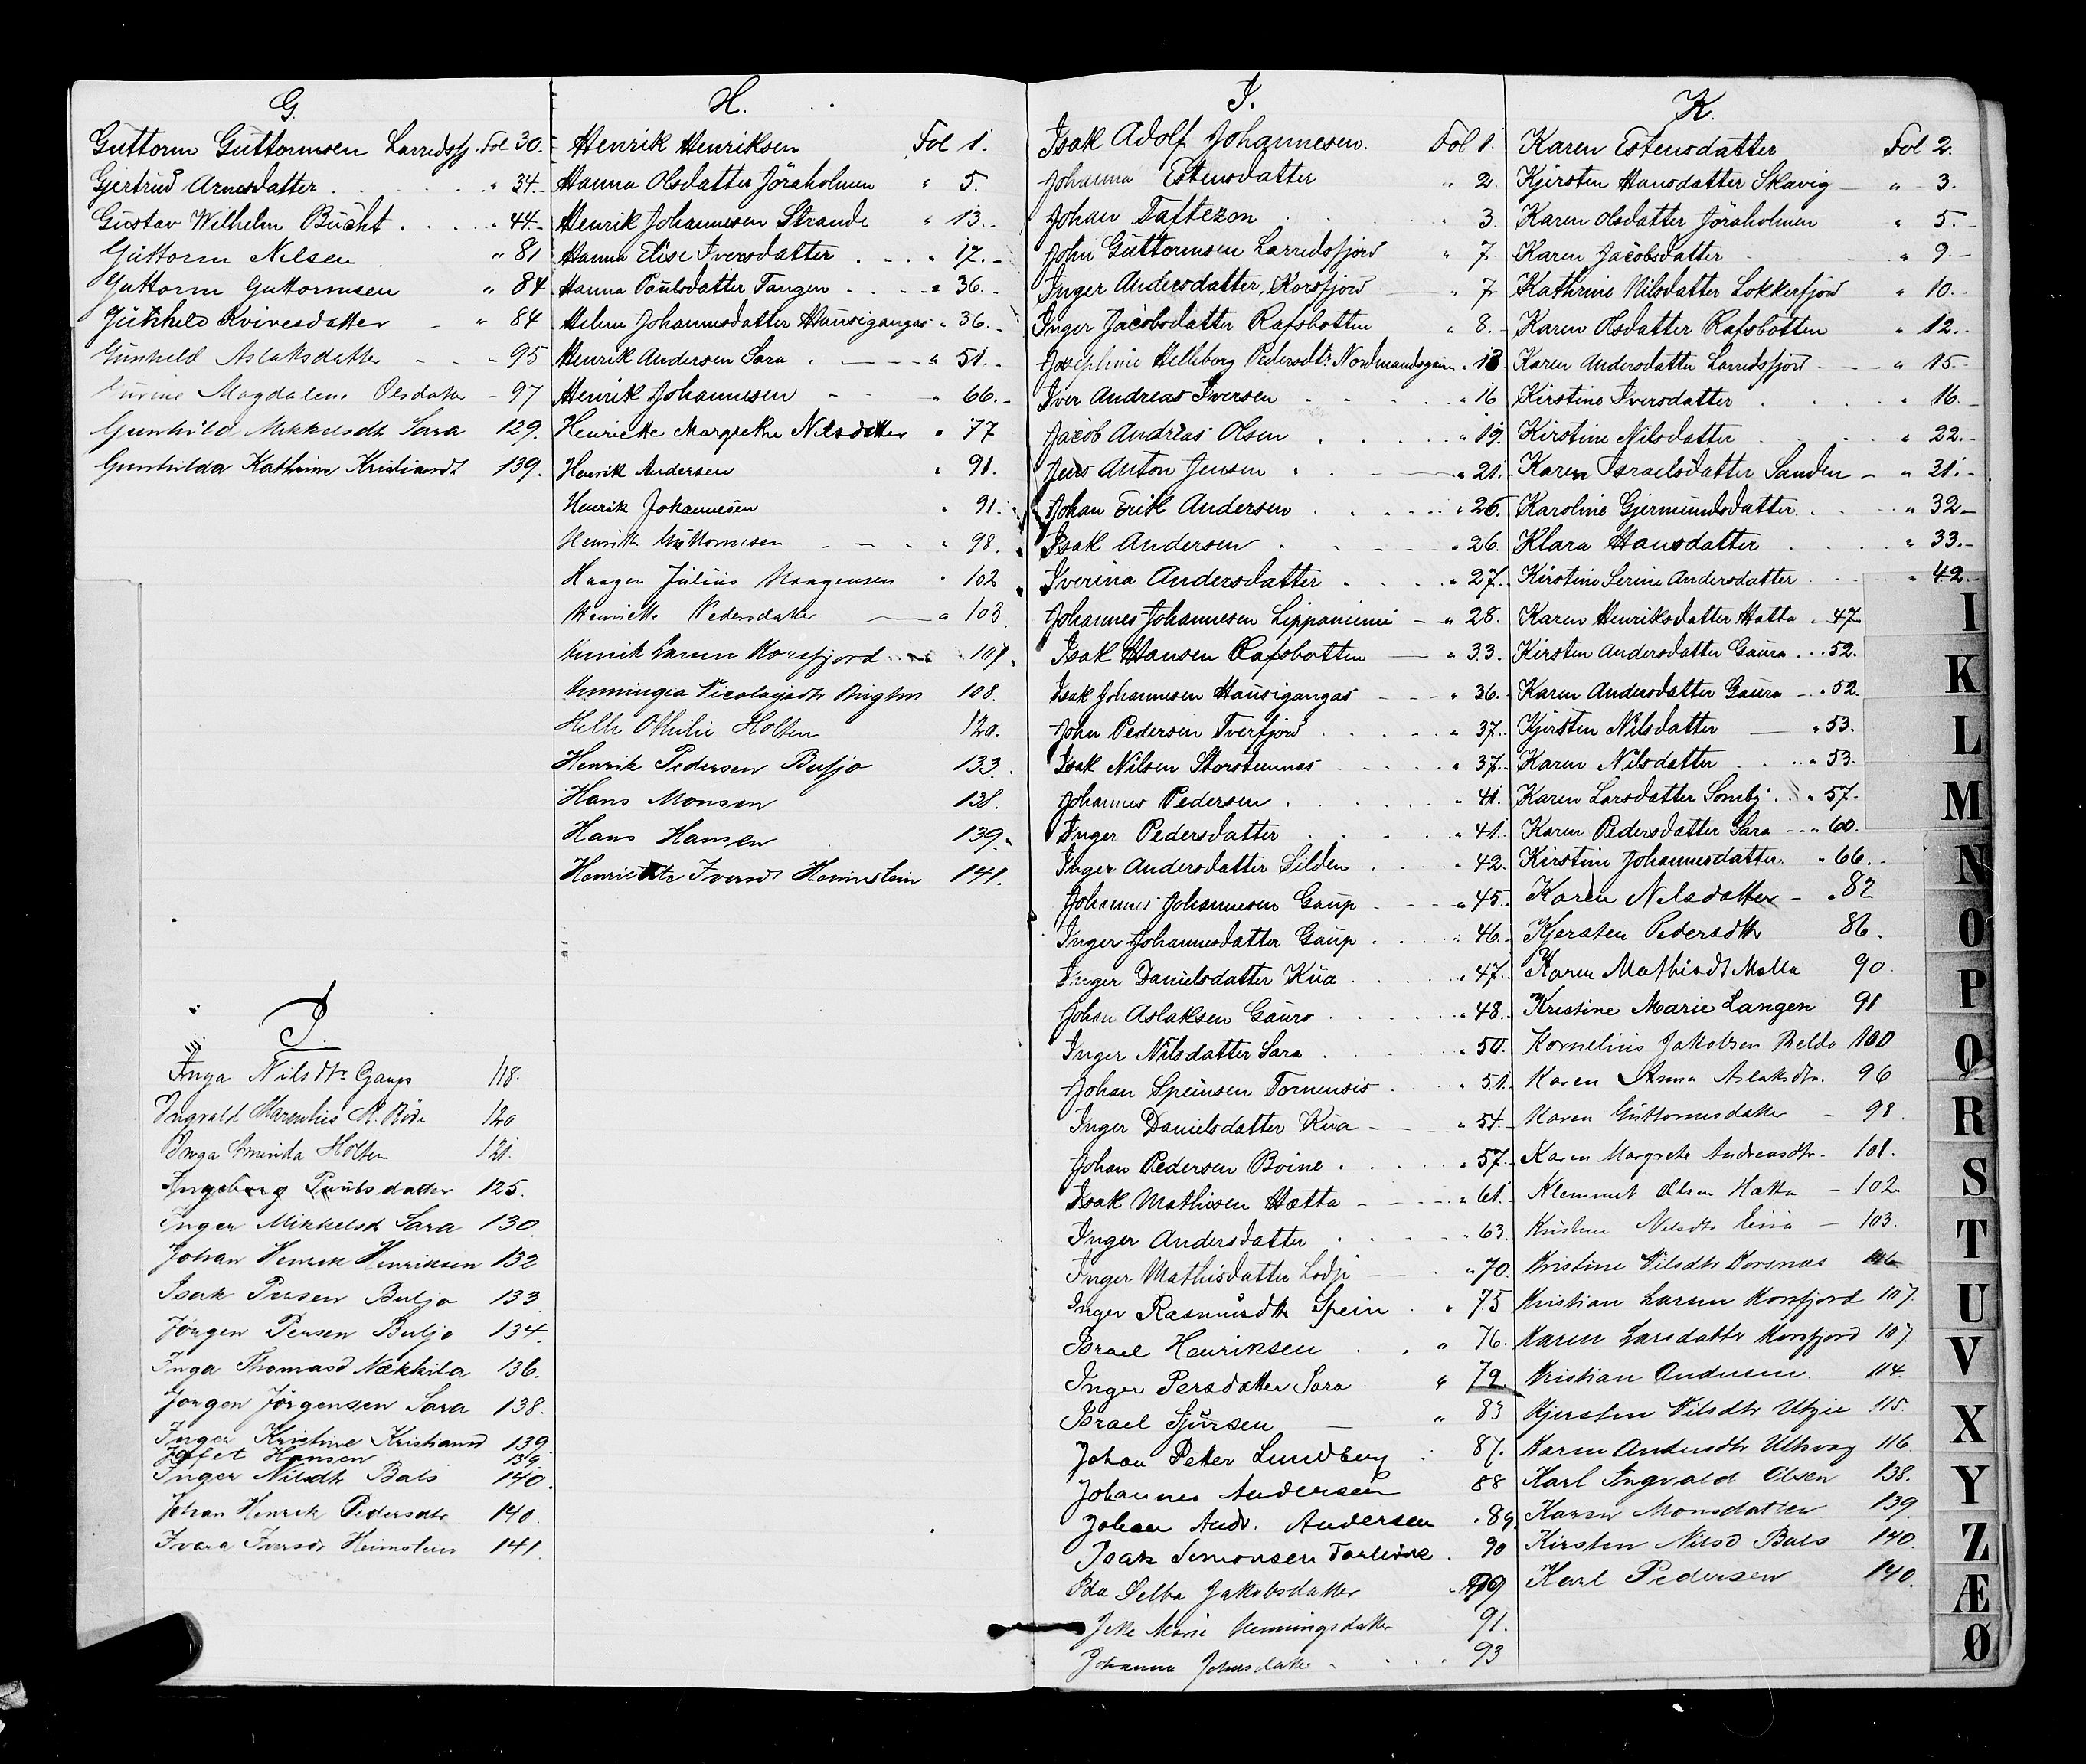 G.
Guttorm Guttormsen Larredsfj. Fol 30.
Gjertrud Arnesdatter " 34.
Gustav Wilhelm Bucht " 44.
Guttorm Nilsen " 81
Guttorm Guttormsen " 84
Gunhild Kvivesdatter " 84
Gunhild Aslaksdatter 95
Magdalene Olsdatter 97
Gunhild Mikkelsdtr Sara 129.
Gunhilda Kathrine Kristiansdt 139.
I.
Inga Nilsdtr Gaup 118.
Ingvald 120
Inga Holten 121.
Ingeborg Paulsdatter 125.
Inger Mikkelsd Sara 130
Johan Henrik Henriksen 132
Isak Persen Buljo 133
Jörgen Persen Buljo 134.
Inga Thomasd Nækkila 136.
Jörgen Jörgensen Sara 138.
Inger Kristine Kristiansd 139.
Jafet Hansen 139.
Inger Nilsdtr Bals 140.
Johan Henrik Pedersdtr 140.
Ivara Iversdt Heimstein 141.
H.
Henrik Henriksen Fol 1.
Hanna Olsdatter Jöraholmen " 5.
Henrik Johannesen Strande " 13.
Hanna Elise Iversdatter " 17.
Hanna Paulsdatter Tangen " 36.
Helene Johannesdatter Hausigangas " 36.
Henrik Andersen Sara " 51.
Henrik Johannesen " 66.
Henriette Margrethe Nilsdatter " 77
Henrik Andersen " 91.
Henrik Johannesen " 91.
Henrik Guttormsen " 98.
Haagen Julius Haagensen " 102
Henriette Pedersdatter " 103
Henrik Larsen Korsfjord 107.
Henningia Nicolaysdtr 108.
Helle Othilie Holten 120.
Henrik Pedersen Buljo 133.
Hans Monsen 138.
Hans Hansen 139.
Henriette Iversdt Heimstein 141.
I.
Isak Adolf Johannesen. Fol 1.
Johanna Estensdatter " 2.
Johan Taftezon " 3.
John Guttormsen Larredsfjord " 7.
Inger Andersdatter, Korsfjord " 7
Inger Jacobsdatter Rafsbotten " 8.
Josephine Helleborg Pedersdtr. " 13.
Iver Andreas Iversen " 16
Jacob Andreas Olsen " 19.
Jens Anton Jensen " 21.
Johan Erik Andersen " 26.
Isak Andersen " 26.
Iverina Andersdatter " 27.
Johannes Johannesen Lippaniemi " 28.
Isak Hansen Rafsbotten " 33.
Isak Johannesen Hausigangas " 36.
John Pedersen Tverfjord " 37.
Isak Nilsen Storsteennes " 37.
Johannes Pedersen " 41.
Inger Pedersdatter " 41.
Inger Andersdatter Silden " 42.
Johannes Johannesen Gaup " 45.
Inger Johannesdatter Gaup " 46.
Inger Danielsdatter Kua " 47.
Johan Aslaksen Gauro " 48.
Inger Nilsdatter Sara " 50.
Johan Speinsen Tornensis " 51.
Inger Danielsdatter Kua " 54.
Johan Pedersen Boine " 57.
Isak Mathisen Hætta " 61.
Inger Andersdatter " 63.
Inger Mathisdatter Lodji " 70.
Inger Rasmusdtr Spein " 75
Israel Henriksen " 76.
Inger Persdatter Sara " 79.
Israel Sjursen " 83
Johan Peter Lundberg 87.
Johannes Andersen 88
Johan Andr. Andersen " 89.
Isak Simonsen 90
Ida Selba Jakobsdatter
Jette Marie Henningsdatter 91.
Johanna Johnsdatter 93
K.
Karen Estensdatter Fol 2.
Kjirsten Hansdatter Skavig " 3.
Karen Olsdatter Jöraholmen " 5.
Karen Jacobsdatter " 9.
Kathrine Nilsdatter Lokkerfjord " 10.
Karen Olsdatter Rafsbotten " 12.
Karen Andersdatter Larredsfjord " 15.
Kirstine Iversdatter " 16.
Kirstine Nilsdatter " 22.
Karen Israelsdatter Sanden " 31.
Karoline Gjermundsdatter " 32.
Klara Hansdatter " 33.
Kirstine Serine Andersdatter " 42.
Karen Henriksdatter Hatta " 47
Kirsten Andersdatter Gaura " 52.
Karen Andersdatter Gaura " 52.
Kjirsten Nilsdatter " 53.
Karen Nilsdatter " 53.
Karen Larsdatter Somby " 57.
Karen Pedersdatter Sara " 60.
Kirstine Johannesdatter " 66.
Karen Nilsdatter " 82
Kjersten Pedersdtr 86.
Karen Mathisdt Malla 90.
Kristine Marie Langen 91
Kornelius Jakobsen Beldo 100
Karen Anna Aslaksdtr. 96
Karen Guttormsdatter 98.
Karen Margrete Andreasdtr. 101.
Klemmet Olsen Hatta 102
Kristine Nilsdtr Eira 103.
Kristine Nilsdtr Korsnæs 106
Kristian Larsen Korsfjord 107.
Karen Larsdatter Korsfjord 107.
Kristian Andersen. 114.
Kjersten Nilsdtr Utsi 115.
Karen Andersdtr 116
Karl Ingvald Olsen 138.
Karen Monsdatter 139.
Kirsten Nilsd Bals 140.
Karl Pedersen 140.
I
K
L
M
N
O
P
Q
R
S
T
U
V
X
Y
Z
Æ
Ø